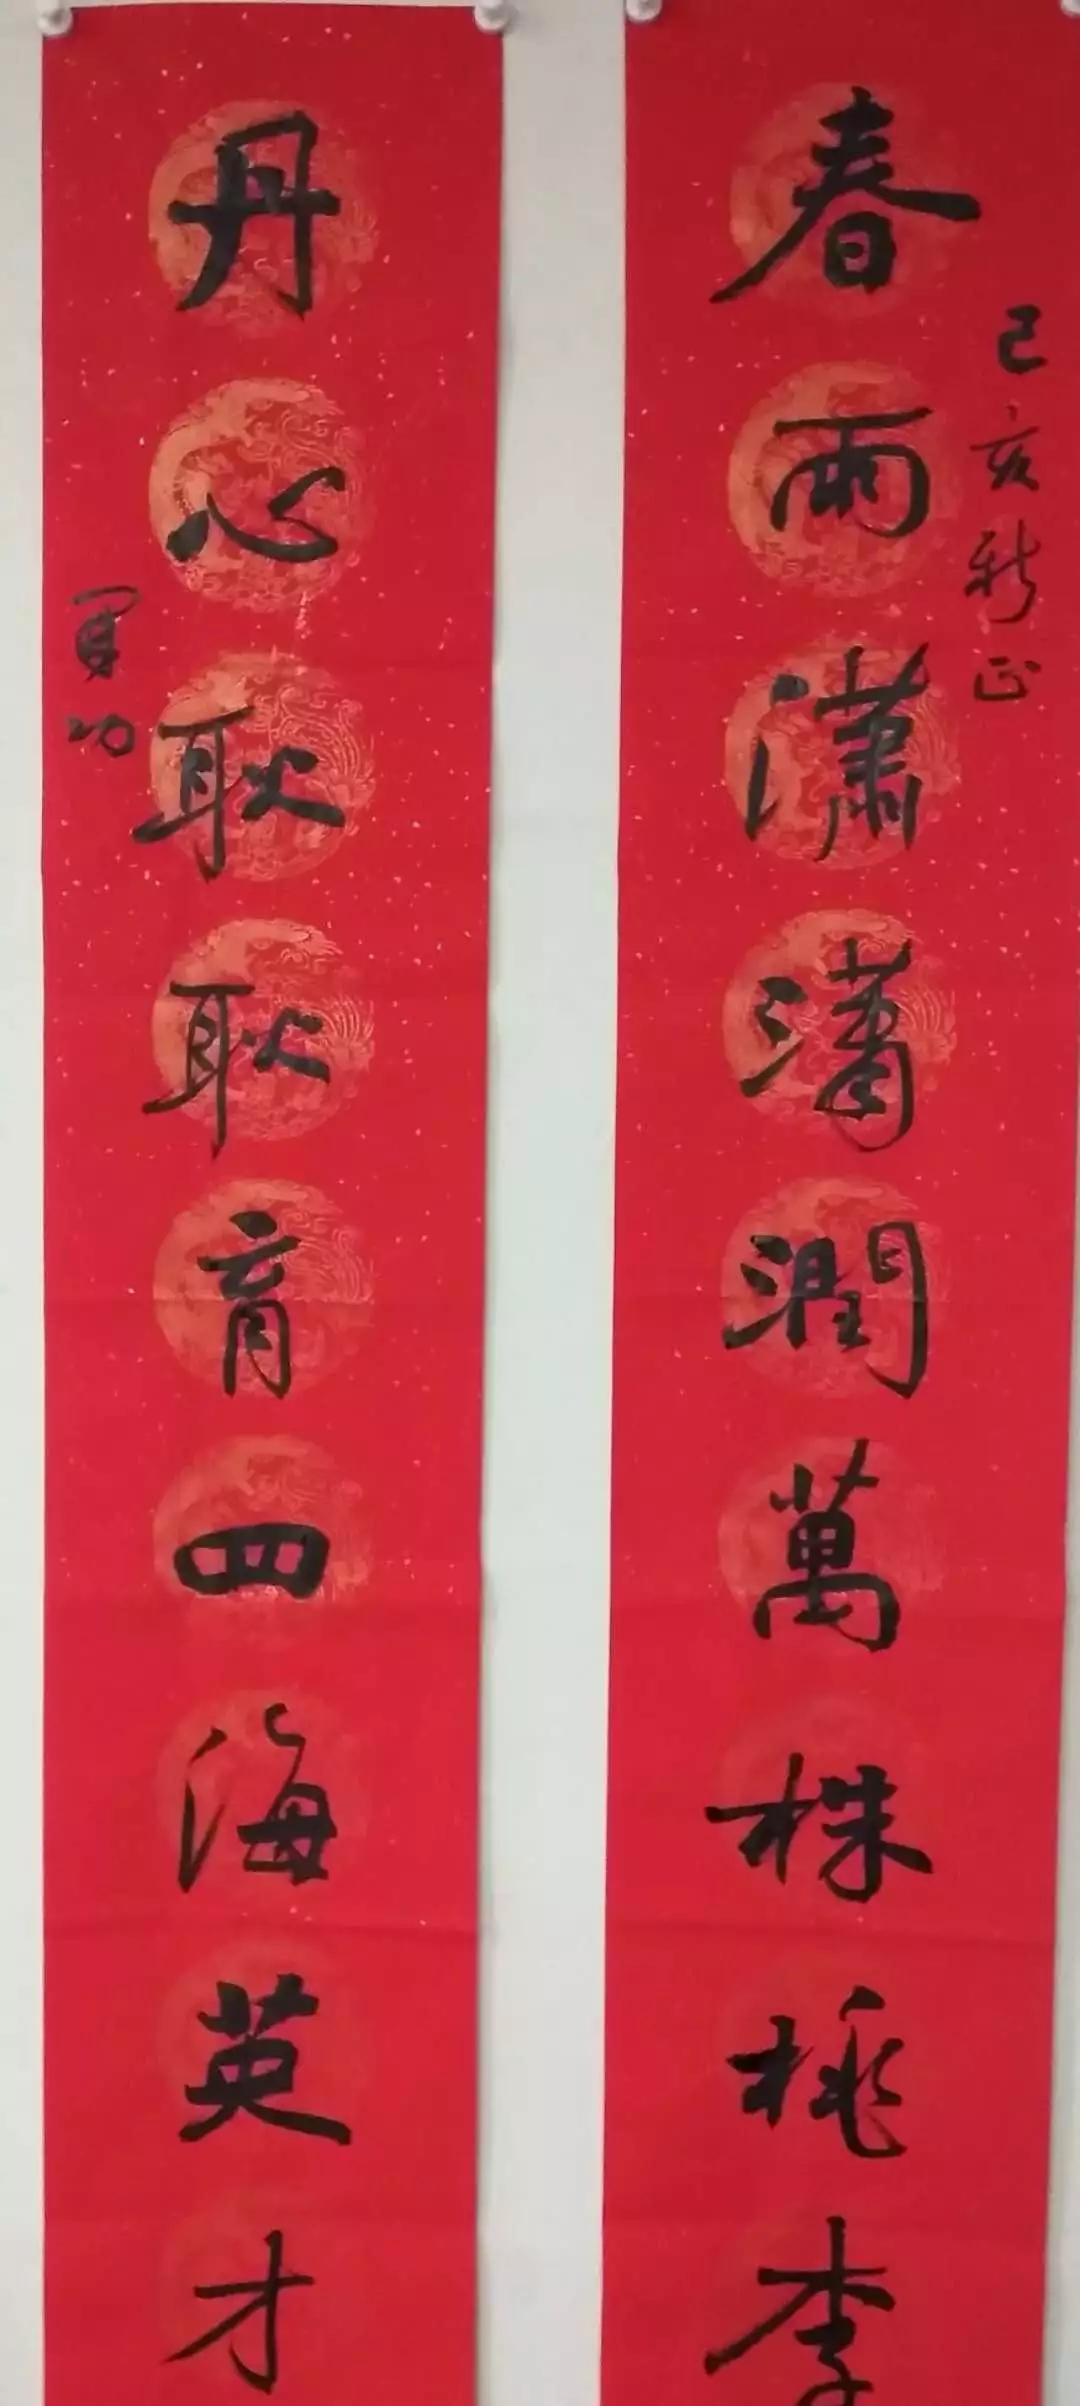 春雨潇潇潤萬株桃李
己亥新正
丹心耿耿育四海英才